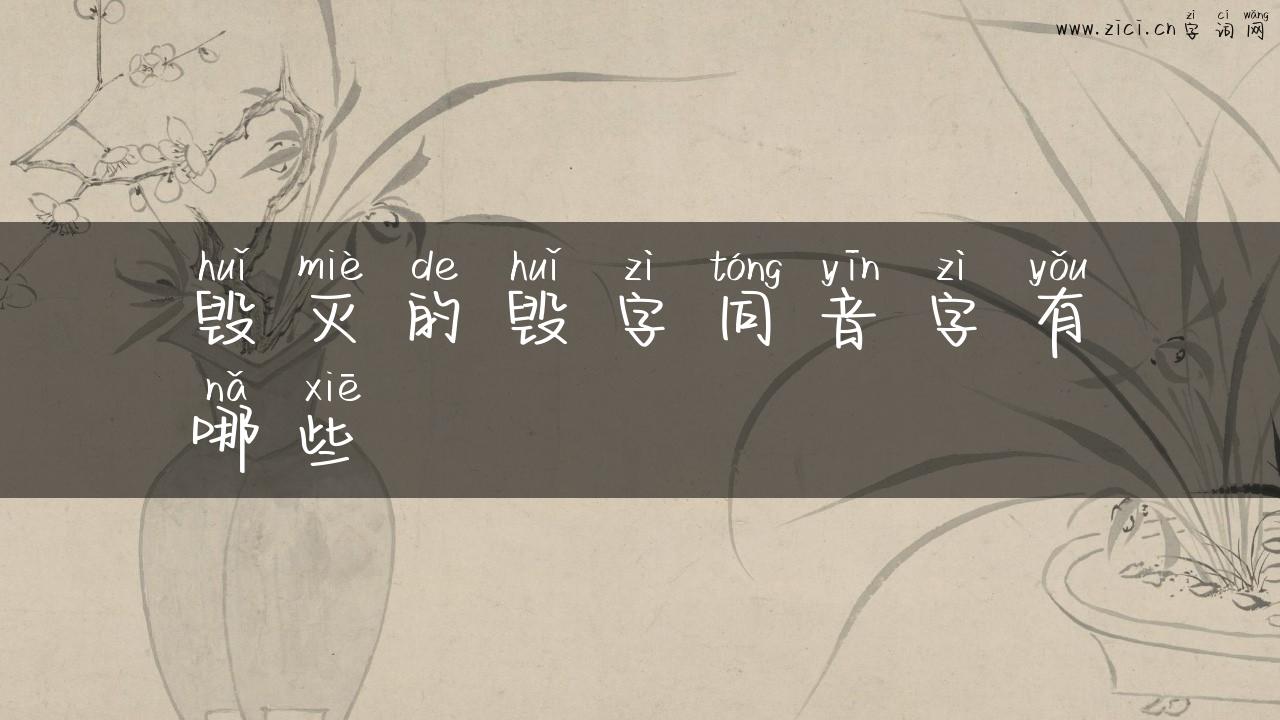 zì cí wǎng
www.zici.cn 字词网
huǐ miè de huǐ zì tóng yīn zì yǒu
毁灭的毁字同音字有
nǎ xiē
哪些